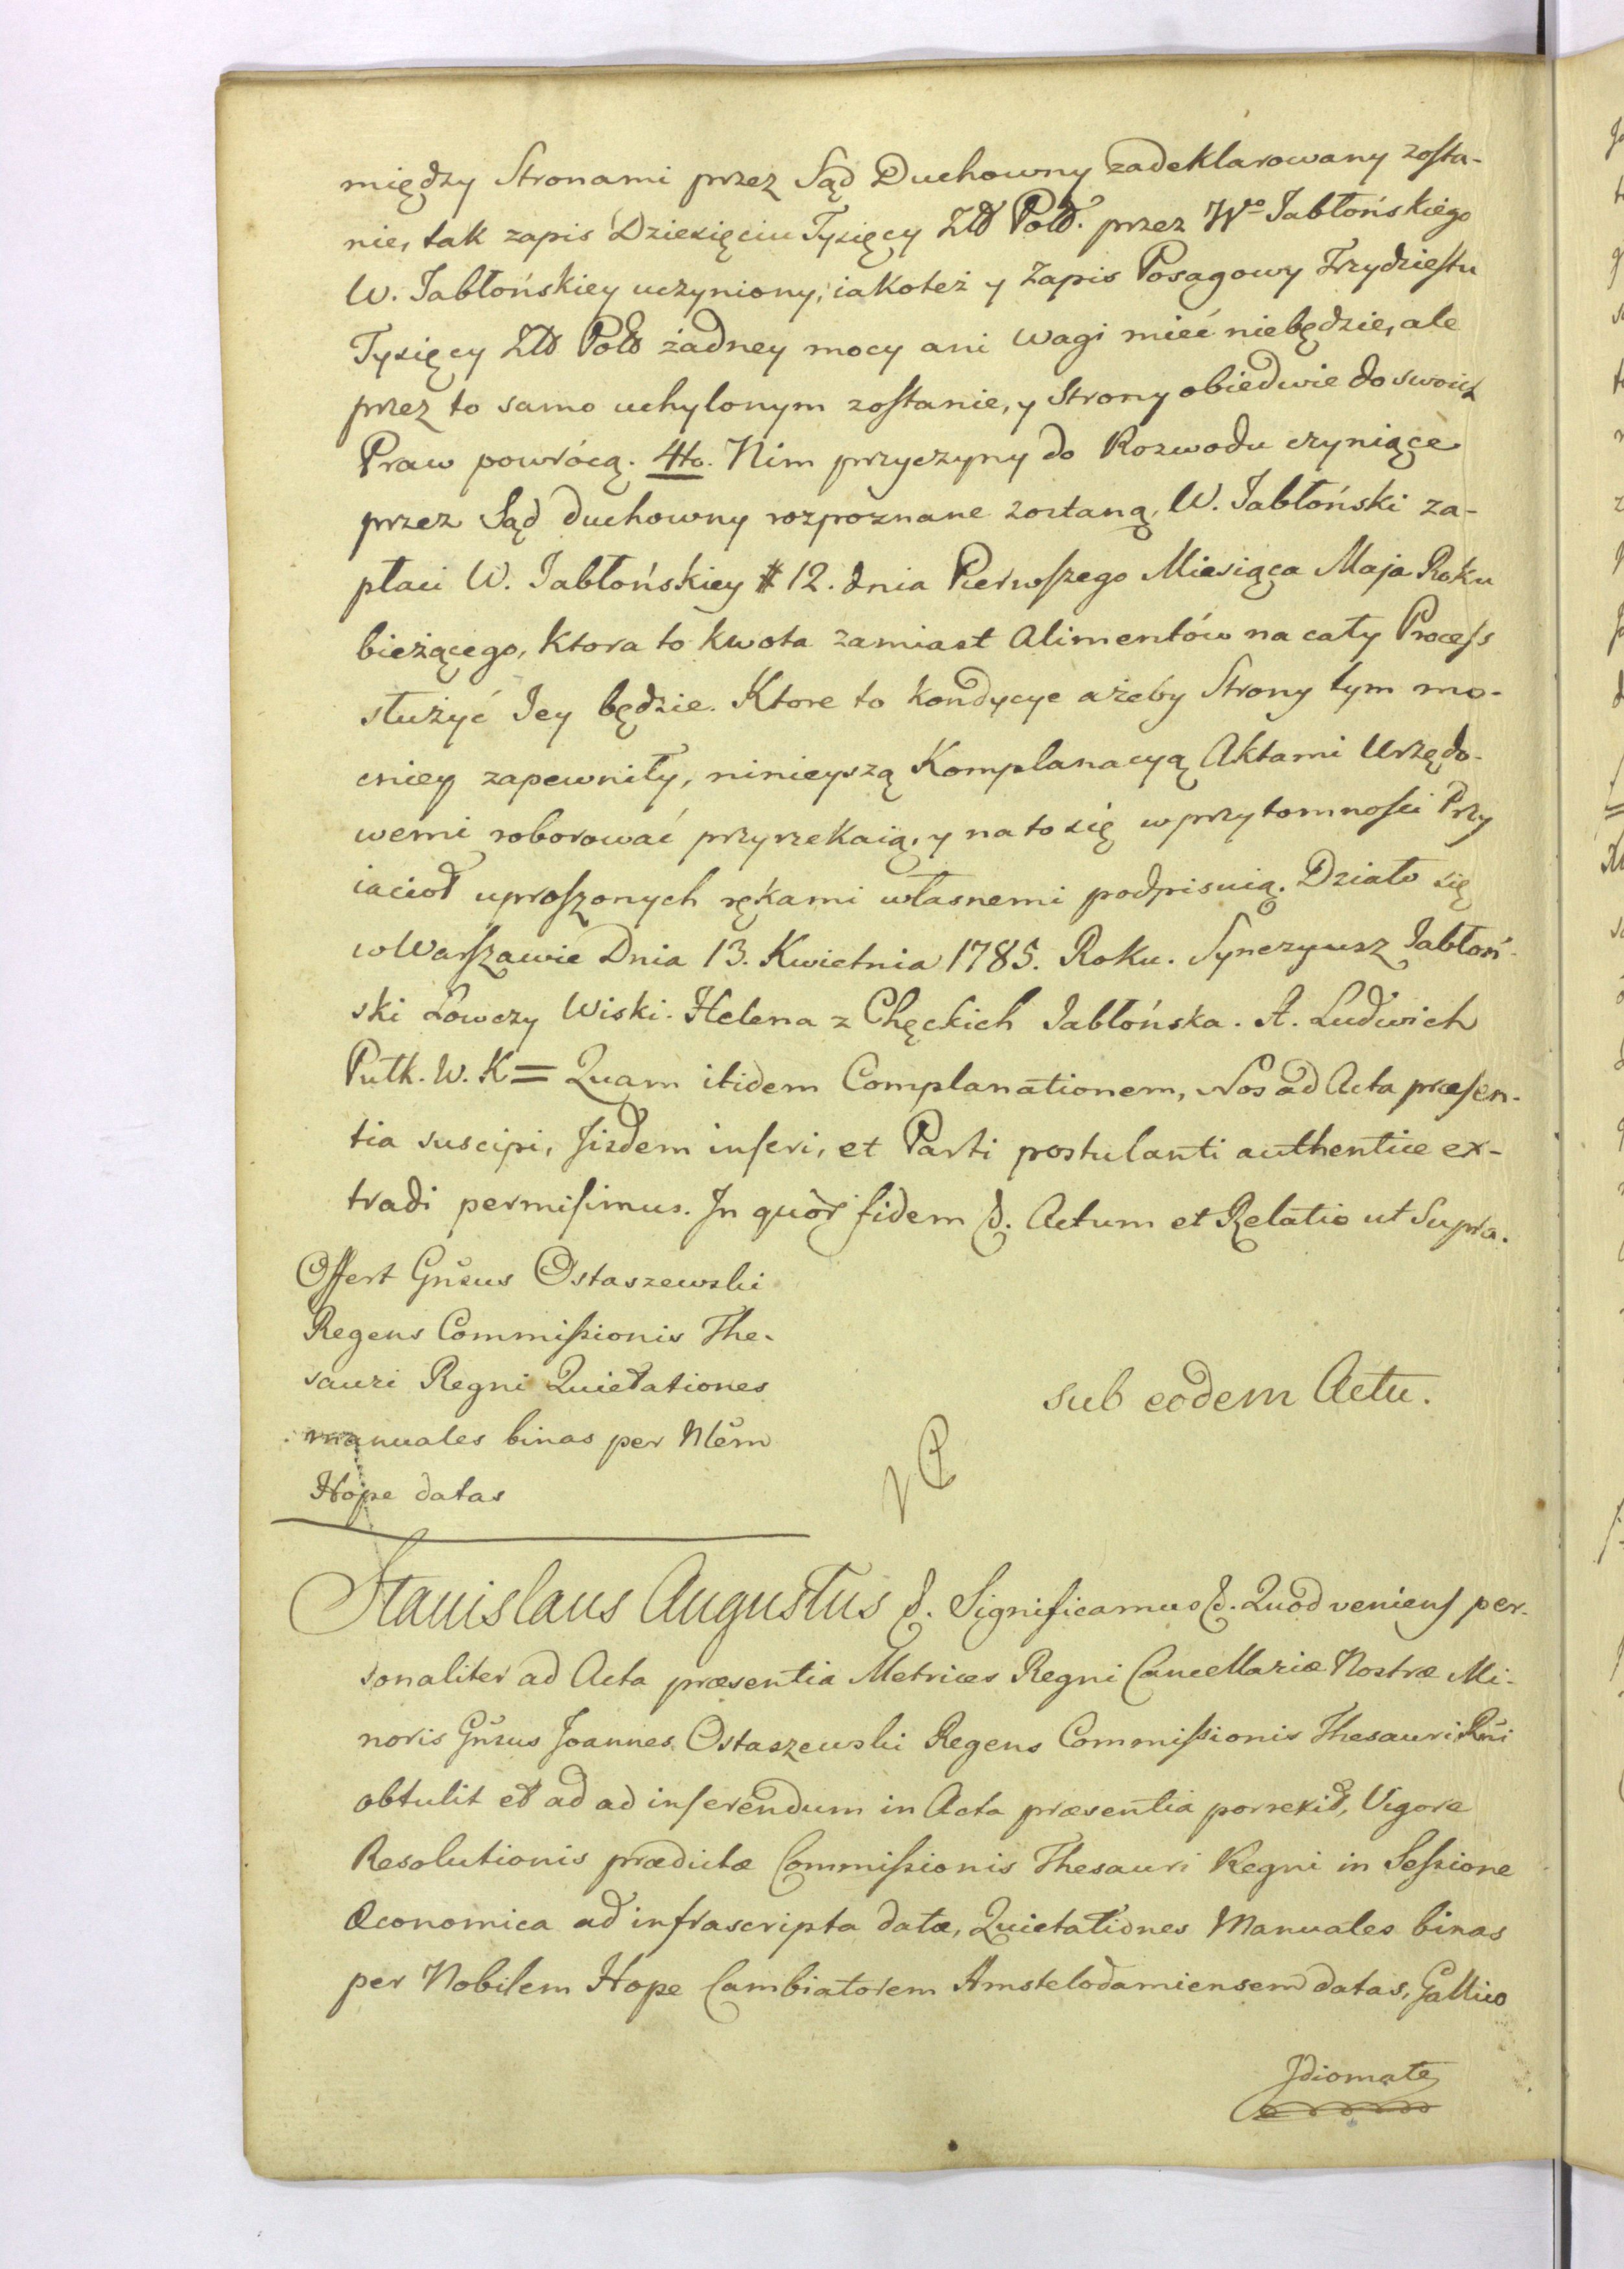 między Stronami przez Sąd Duchowny zadeklarowany zosta-
nie, tak zapis Dziesięciu Tysięcy Złł Poll. przez Wgo Jabłońskiego
W. Jabłońskiey uczyniony, iakoteż y Zapis Posagowy Trzydziestu
Tysięcy Złł Poll żadney mocy ani wagi mieć niebędzie, ale
przez to samo uchylonym zostanie, y Strony obiedwie do swoich
Praw powrócą. 4to. Nim przyczyny do Rozwodu czyniące
przez Sąd duchowny rozpoznane zostaną, W. Jabłoński za-
płaci W. Jabłońskiey # 12. dnia Pierwszego Miesiąca Maja Roku
bieżącego, ktora to kwota zamiast Alimentów na cały Process
służyć Jey będzie. Ktore to kondycye ażeby Strony tym mo-
cniey zapewniły, ninieyszą Komplanacyą Aktami Urzędo-
wemi roborować przyrzekaią, y na to się w przytomności Przy
iacioł uproszonych rękami własnemi podpisuią. Działo się
w Warszawie Dnia 13. Kwietnia 1785. Roku. Synezyusz Jabłoń-
ski Łowczy Wiski. Helena z Chęckich Jabłońska. A. Ludwich
Pułk. W. K = Quam itidem Complanationem, Nos ad Acta præsen-
tia suscipi, Jisdem inseri, et Parti postulanti authentice ex-
tradi permisimus. In quor fidem &. Actum et Relatio ut Supra.
Offert Gnsus Ostaszewski
Regens Commissionis The-
sauri Regni Quietationes
manuales binas per Nlem
Hope datas
sub eodem Actu.
Stanislaus Augustus &. Significamus &. Quod veniens per-
sonaliter ad Acta præsentia Metrices Regni Cancellariæ Nostræ Mi-
noris Gnsus Joannes Ostaszewski Regens Commissionis Thesauri Rni
obtulit et ad ad inserendum in Acta præsentia porrexit, Vigore
Resolutionis prædictæ Commissionis Thesauri Regni in Sessione
Œconomica ad infrascripta datæ, Quietationes Manuales binas
per Nobilem Hope Cambiatorem Amstelodamiensem datas, Gallico
Idiomate